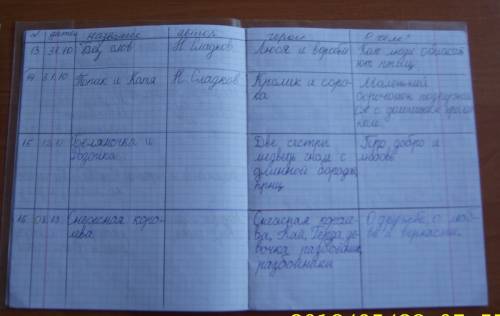 дата название автор герои О чём?
13 31.10 Без слов Н. Сладков Люся и ворона Как люди
Топик и Катя Н. Сладков Кролик и соро-
ка
Маленький
сорочонок подружил-
ся с домашним кроли-
ком.
15 Беляночка и
Розочка
Две сестры
медведь гном с
длинной бородой
принц
Про добро и
любовь
16 Снежная коро-
лева
Снежная короле-
ва, Кай, Герда де-
вочка разбойница,
разбойники
О дружбе, о люб-
ви и верности.